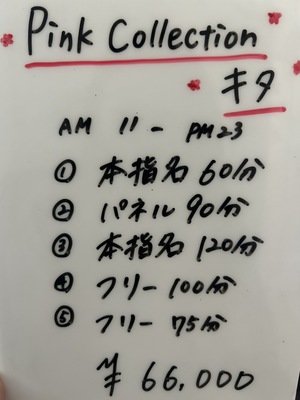 Pink Collection
キタ
AM 11 - PM23
① 本指名 60分
② パネル 90分
③ 本指名 120分
④ フリー 100分
⑤ フリー 75分
¥ 66,000